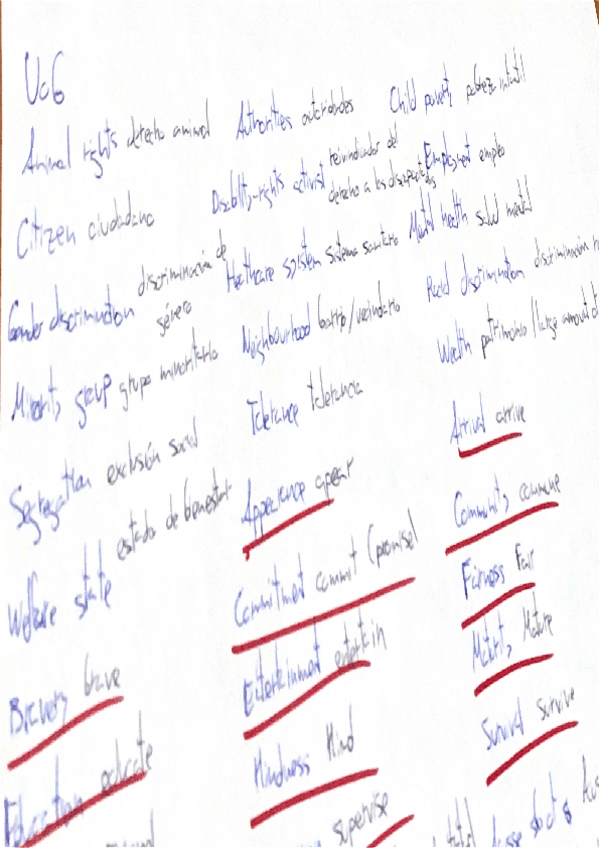 Uo6
Animal rights derecho animal
Authorities autoridades
Child poverty pobreza infantil
Citizen ciudadano
Disability-rights activist reivindicador del
derecho a los discapacitados
Employment empleo
Gender discrimination discriminación de
género
Healthcare system sistema sanitario
Mental health salud mental
Minority group grupo minoritario
Neighbourhood barrio/vecindario
Racial discrimination discriminación
Segregation exclusión social
Tolerance tolerancia
Wealth patrimonio/large amount of
Welfare state estado de bienestar
Appearance apear
Arrival arrive
Bravery brave
Commitment commit (promise)
Community commune
Education educate
Entertainment entertain
Fairness Fair
Kindness Kind
Maturity Mature
supervise
Survival Survive